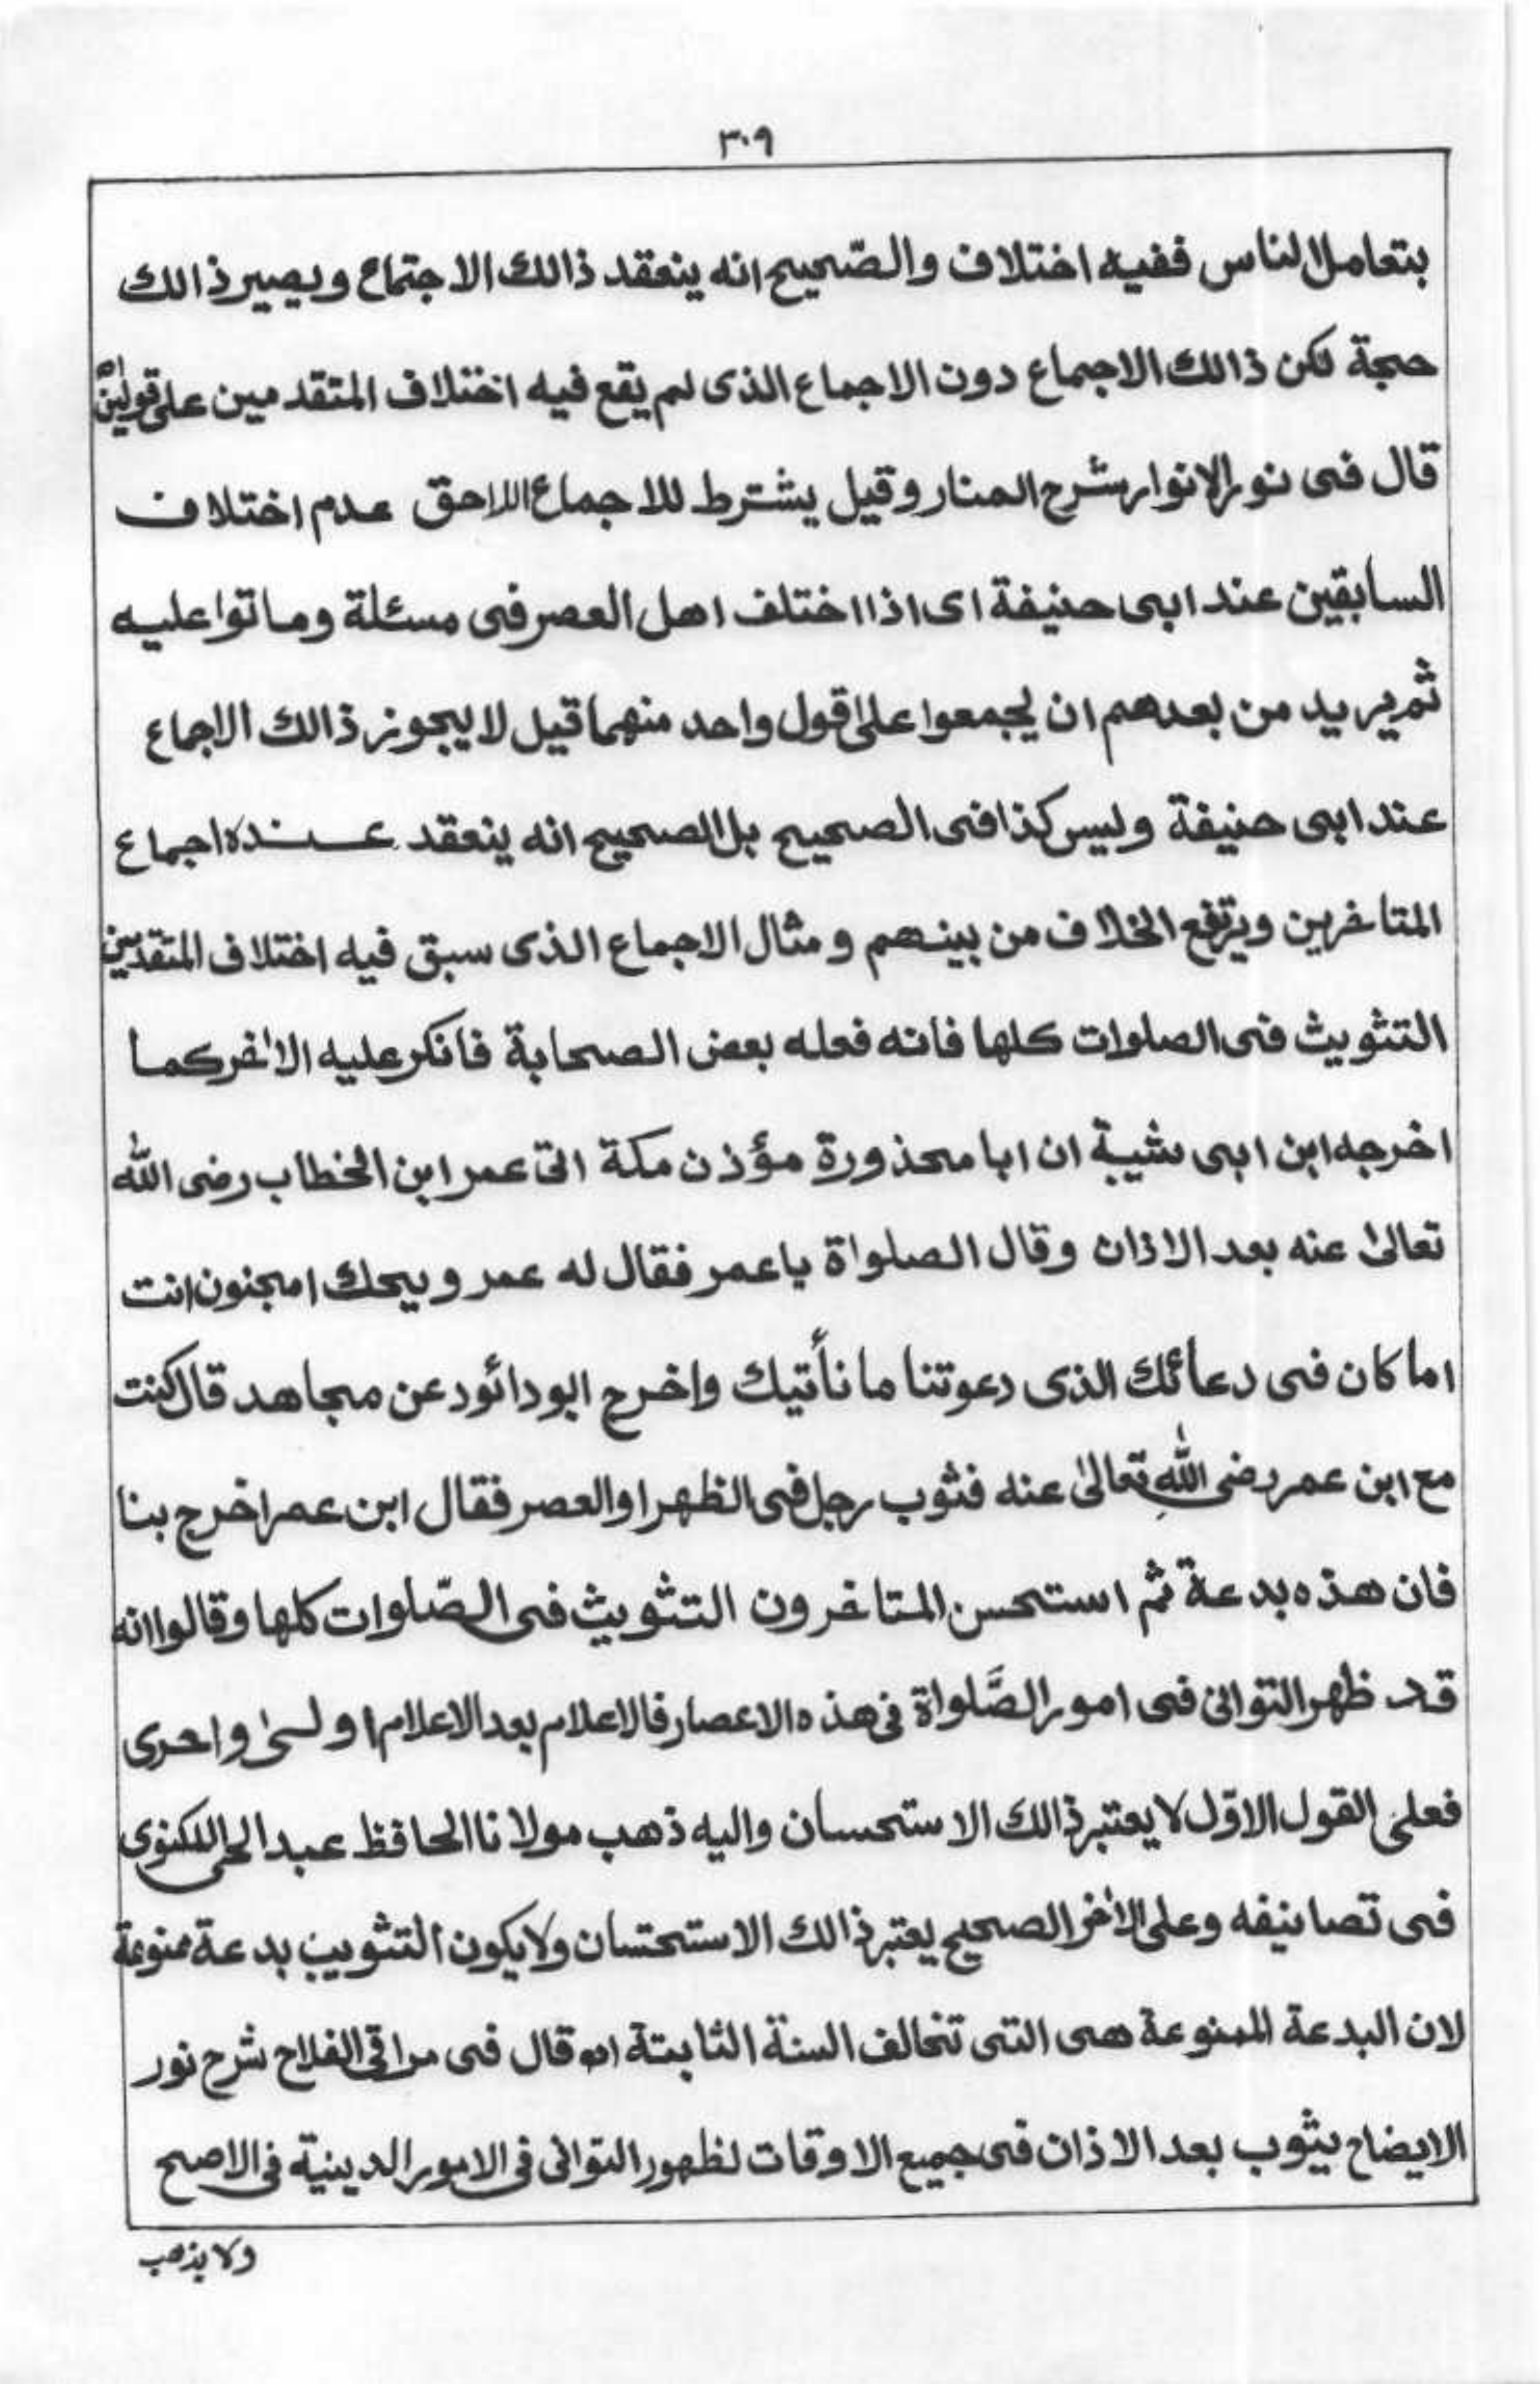 ٣٠٩
بتعامل الناس ففيه اختلاف والصّحيح انه ينعقد ذالك الاجتماع ويصير ذالك
حجة لكن ذالك الاجماع دون الاجماع الذى لم يقع فيه اختلاف المتقدمين على قولين
قال فى نور الانوار شرح المنار وقيل يشترط للاجماع اللاحق عدم اختلاف
السابقين عند ابى حنيفة اى اذا اختلف اهل العصر فى مسئلة وماتوا عليه
ثم يريد من بعدهم ان يجمعوا على قول واحد منهما قيل لا يجوز ذالك الاجماع
عند ابى حنيفة وليس كذا فى الصحيح بل الصحيح انه ينعقد عنده اجماع
المتاخرين ويرتفع الخلاف من بينهم ومثال الاجماع الذى سبق فيه اختلاف المتقدمين
التثويث فى الصلوات كلها فانه فعله بعض الصحابة فانكر عليه الاٰخر كما
اخرجه ابن ابى شيبة ان ابا محذورة مؤذن مكة اتى عمر ابن الخطاب رضى الله
تعالىٰ عنه بعد الاذان وقال الصلواة يا عمر فقال له عمر ويحك امجنون انت
اما كان فى دعائك الذى دعوتنا ما نأتيك واخرج ابودائود عن مجاهد قال كنت
مع ابن عمر رضى الله تعالىٰ عنه فثوب رجل فى الظهر او العصر فقال ابن عمر اخرج بنا
فان هذه بدعة ثم استحسن المتاخرون التثويث فى الصّلوات كلها وقالوا انه
قد ظهر التوانى فى امور الصَّلواة فى هذه الاعصار فالاعلام بعد الاعلام اولىٰ واحرى
فعلى القول الاوّل لا يعتبر ذالك الاستحسان واليه ذهب مولانا الحافظ عبد الحى اللكنوى
فى تصانيفه وعلى الاٰخر الصحيح يعتبر ذالك الاستحتسان ولا يكون التثويب بدعة ممنوعة
لان البدعة الممنوعة هى التى تخالف السنة الثابتة اه قال فى مراقى الفلاح شرح نور
الايضاح يثوب بعد الاذان فى جميع الاوقات لظهور التوانى فى الامور الدينية فى الاصح
ولا يذهب